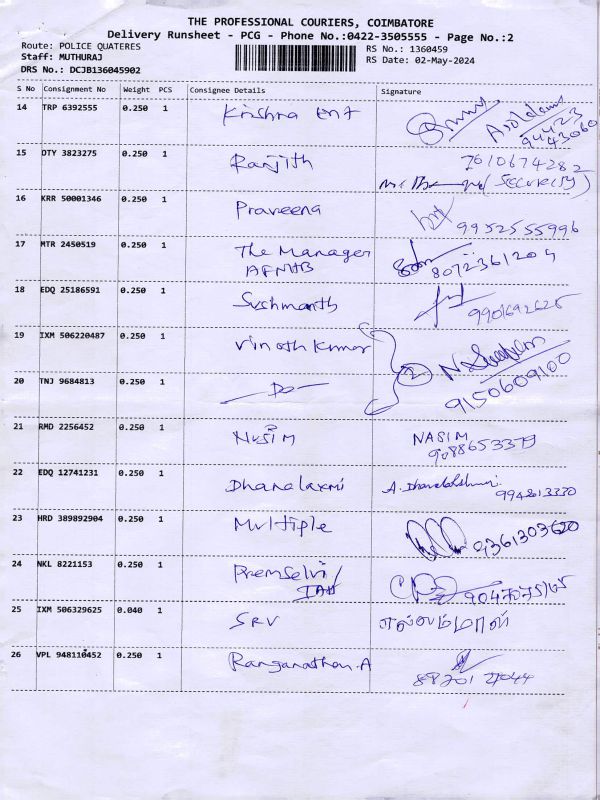 THE PROFESSIONAL COURIERS, COIMBATORE
Delivery Runsheet - PCG - Phone No.:0422-3505555 - Page No.:2
Route: POLICE QUATERES
RS No.: 1360459
Staff: MUTHURAJ
RS Date: 02-May-2024
DRS No.: DCJB136045902
S No Consignment No Weight PCS Consignee Details Signature
14 TRP 6392555 0.250 1 Krishna ent
94423
43060
15 DTY 3823275 0.250 1 Ranjith 7610674282
(Security)
16 KRR 50001346 0.250 1 Praveena 9952555996
17 MTR 2450519 0.250 1 The Manager
AFNHB 8072361204
18 EDQ 25186591 0.250 1 Sushmanth 9901692625
19 IXM 506220487 0.250 1 Vinoth Kumar
20 TNJ 9684813 0.250 1 -Do- 2 9150609100
21 RMD 2256452 0.250 1 Nasim NASIM
9088653379
22 EDQ 12741231 0.250 1 Dhanalaxmi A. Dhanalakshmi
9944813330
23 HRD 389892904 0.250 1 Multiple 9361303620
24 NKL 8221153 0.250 1 Premselvi/
25 IXM 506329625 0.040 1 SRV எல்லம்மாள்
26 VPL 948110452 0.250 1 Ranganathan.A